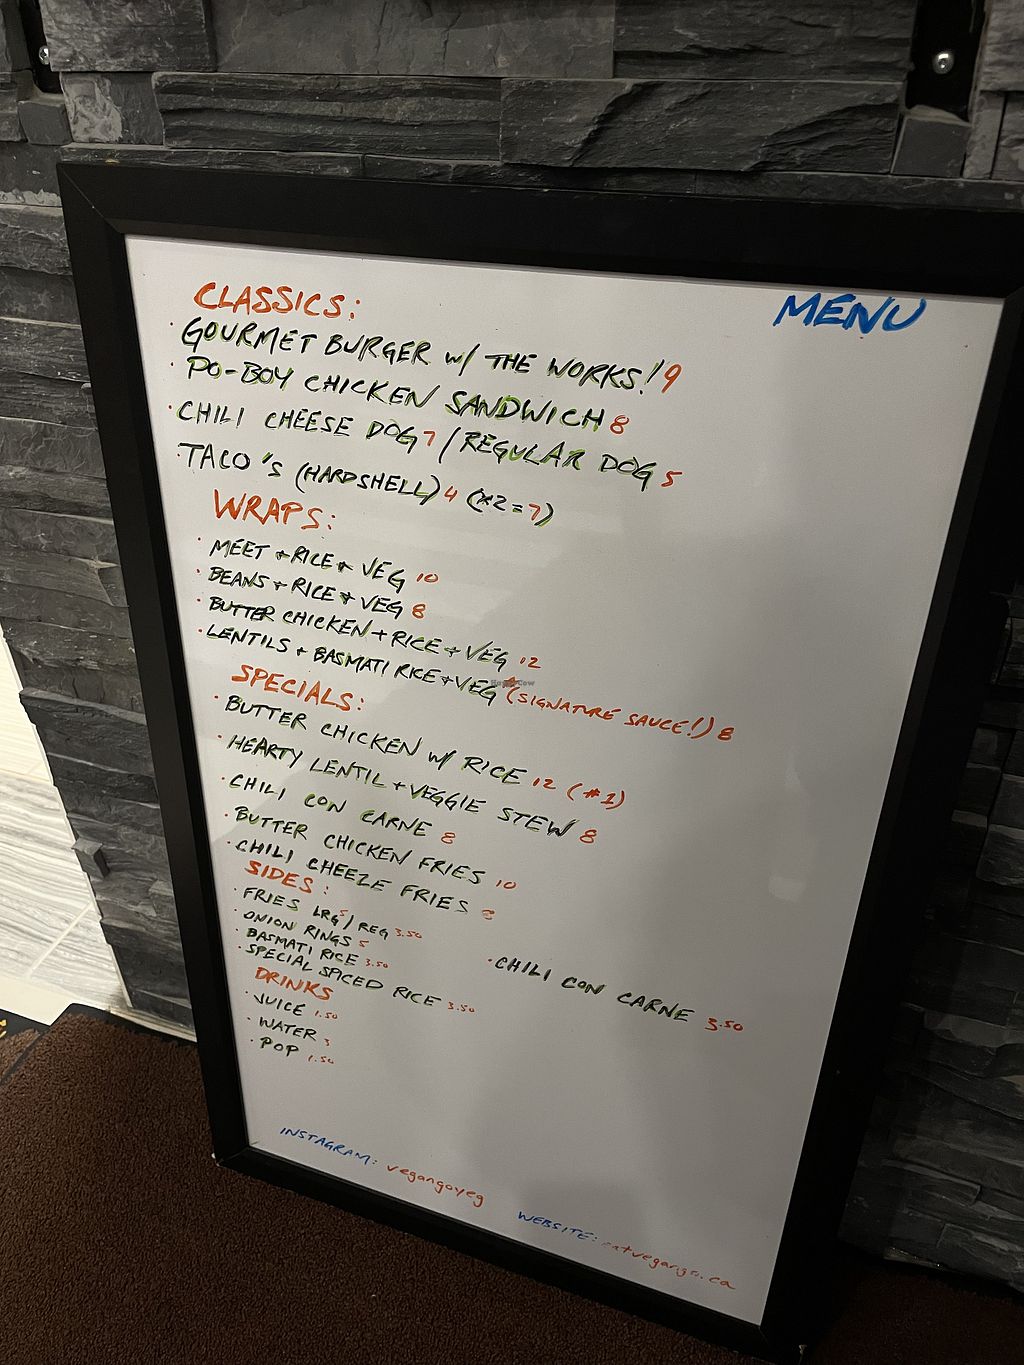 MENU
CLASSICS:
· GOURMET BURGER w/ THE WORKS! 9
· PO-BOY CHICKEN SANDWICH 8
· CHILI CHEESE DOG 7 / REGULAR DOG 5
· TACO'S (HARDSHELL) 4 (x2=7)
WRAPS:
· MEET + RICE + VEG 10
· BEANS + RICE + VEG 8
· BUTTER CHICKEN + RICE + VEG 12
· LENTILS + BASMATI RICE + VEG (SIGNATURE SAUCE!) 8
SPECIALS:
· BUTTER CHICKEN w/ RICE 12 (#1)
· HEARTY LENTIL + VEGGIE STEW 8
· CHILI CON CARNE 8
· BUTTER CHICKEN FRIES 10
· CHILI CHEEZE FRIES
SIDES:
· FRIES LRG 5 / REG 3.50
· ONION RINGS 5
· BASMATI RICE 3.50
· SPECIAL SPICED RICE 3.50
· CHILI CON CARNE 3.50
DRINKS
· JUICE 1.50
· WATER
· POP 1.50
INSTAGRAM: vegangoyeg
WEBSITE: eatvegango.ca
HappyCow